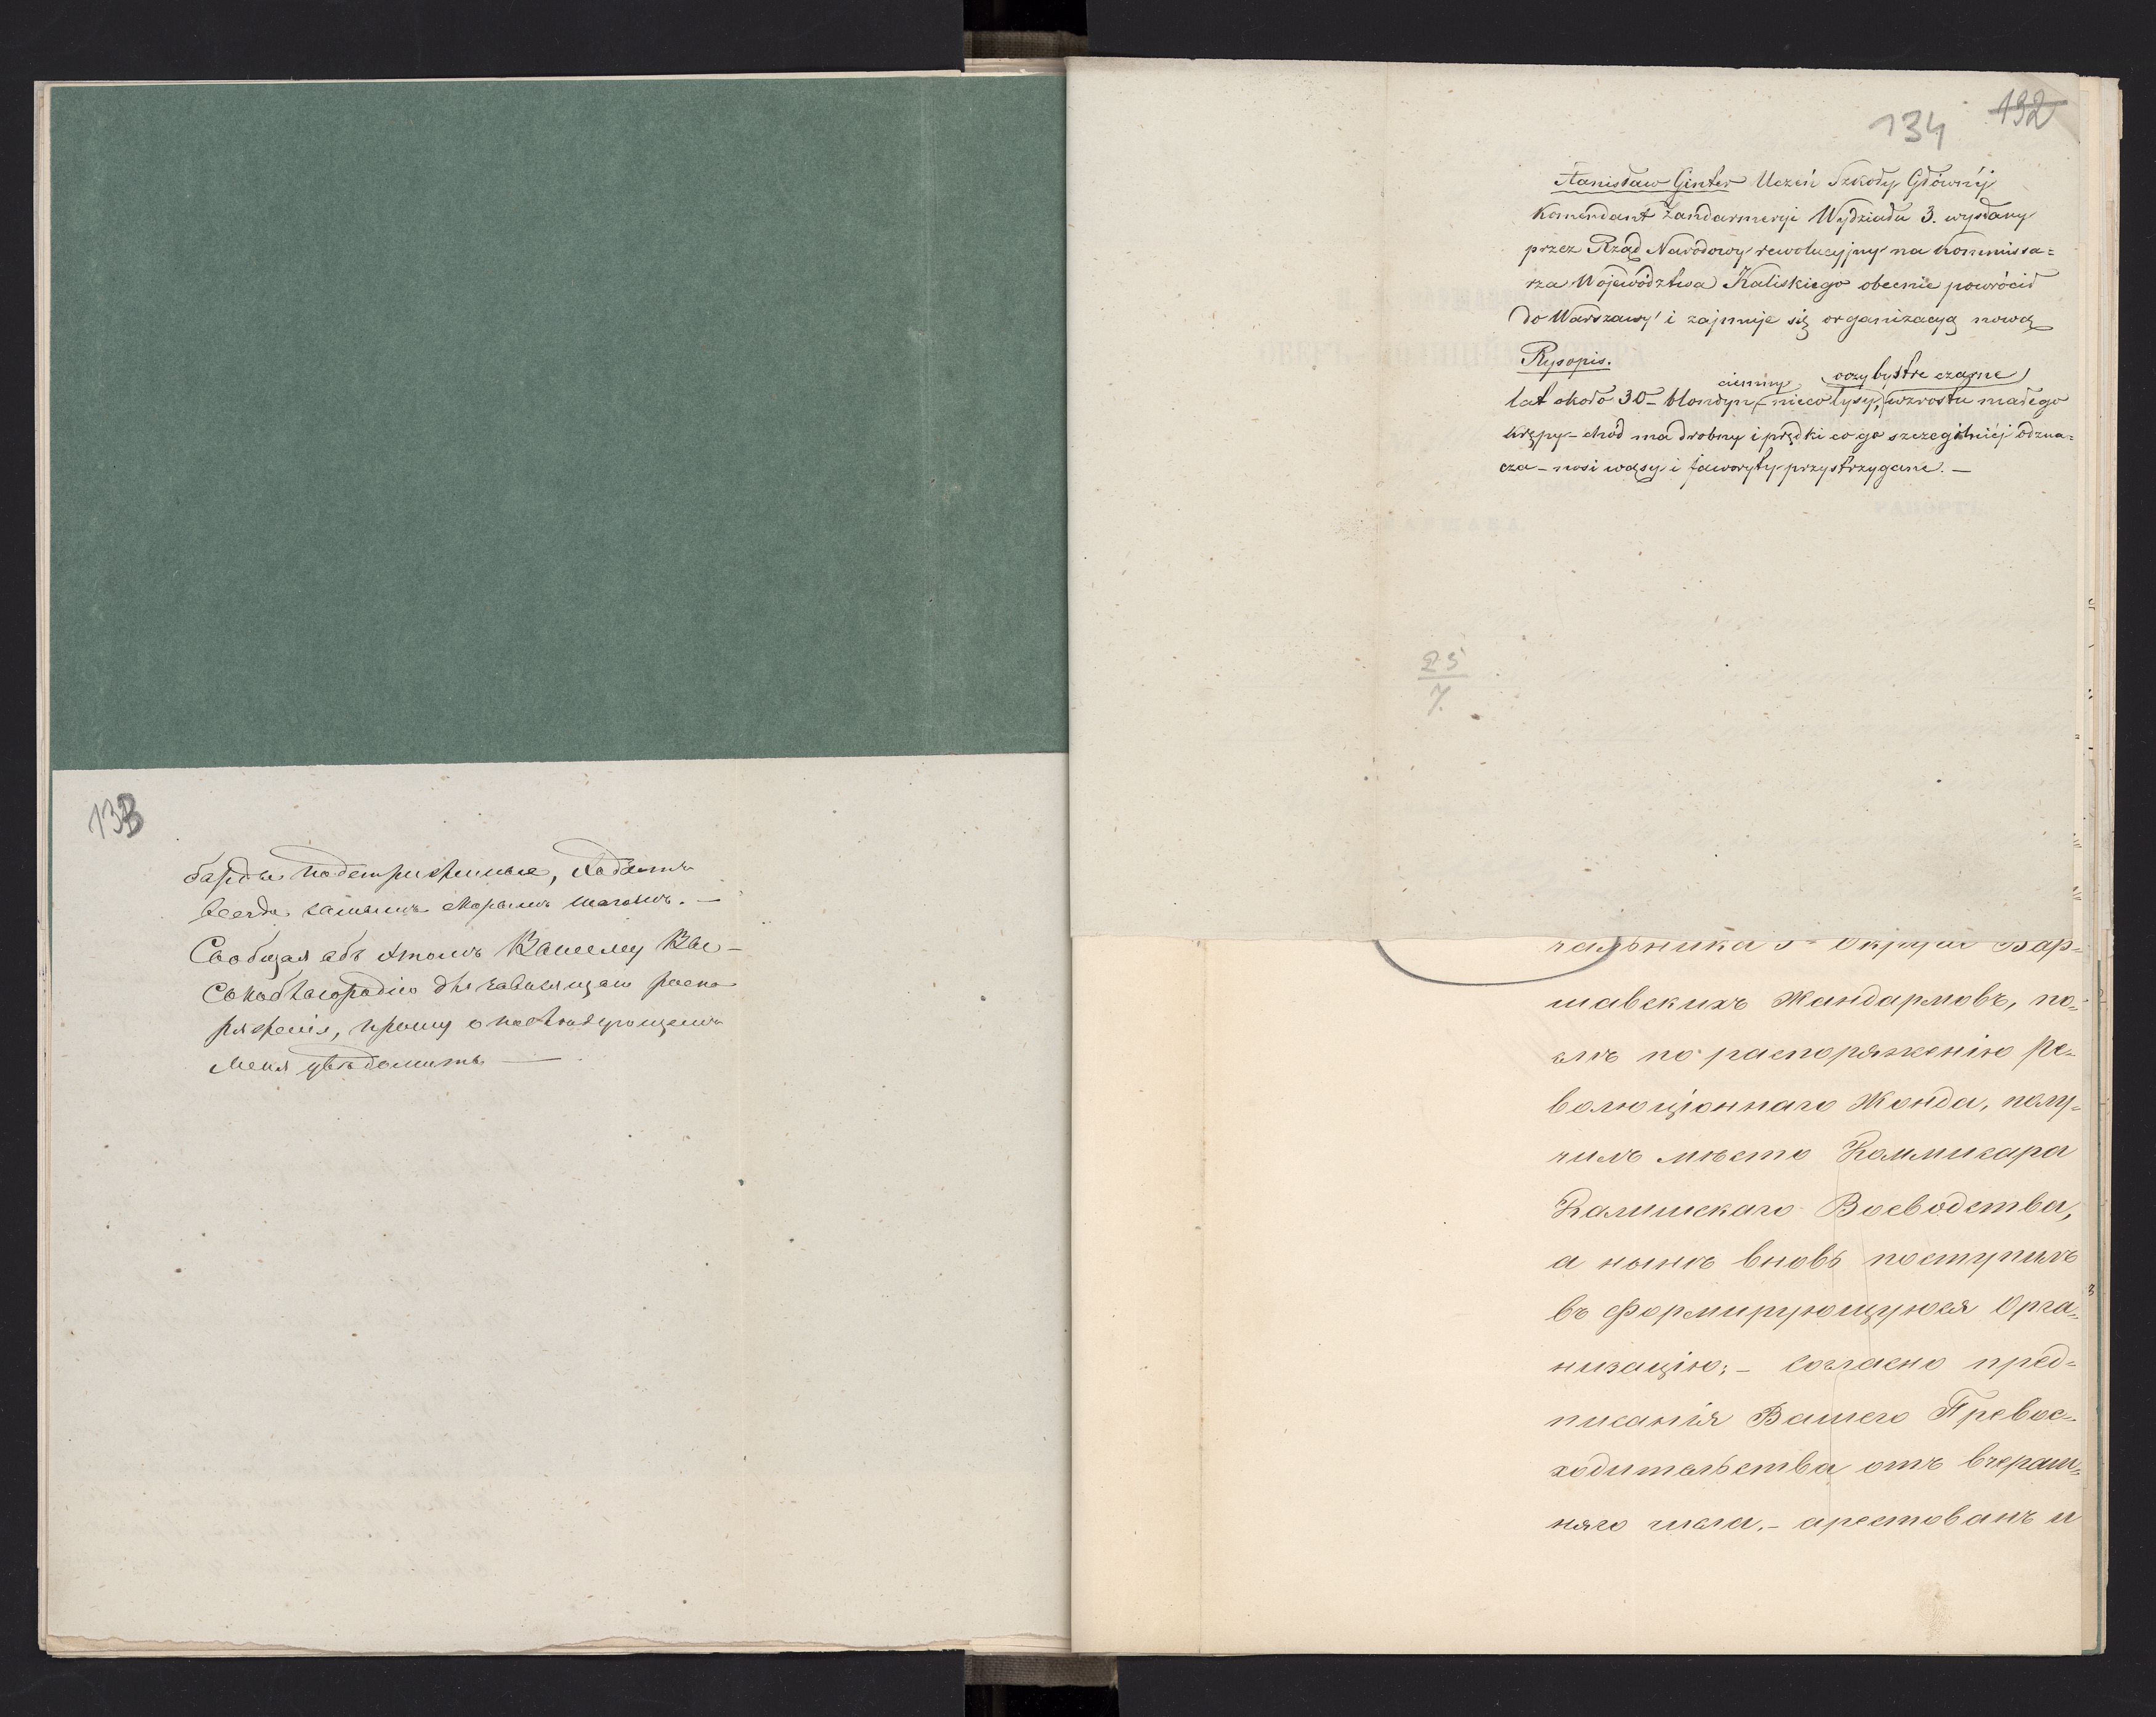 133
барды подстриженные, ходитъ
всегда самымъ скорымъ шагомъ. —
Сообщая объ этомъ Вашему Вы-
сокоблагородію для зависящаго распо
ряженія, прошу о послѣдующемъ
меня увѣдомить —
134 132
Stanisław Ginter Uczeń Szkoły Głównéj
Komendant Żandarmeryi Wydziału 3. wysłany
przez Rząd Narodowy rewolucyjny na Kommissa=
rza Województwa Kaliskiego obecnie powrócił
do Warszawy i zajmuje się organizacyą nową
Rysopis.
ciemny oczy bystre czarne
lat około 30 – blondyn, nieco łysy, wzrostu małego
krępy – chód ma drobny i prędki co go szczególniéj odzna=
cza – nosi wąsy i faworyty przystrzygane. —
25
7.
чальника 3го Округа Вар=
шавскихъ Жандармовъ, по=
слѣ по распоряженію Ре=
волюціоннаго Жонда, полу=
чилъ мѣсто Коммисара
Калишскаго Воеводства,
а нынѣ вновь поступилъ
въ формирующуюся Орга=
низацію; – согласно пред=
писанія Вашего Превос=
ходительства отъ вчераш=
няго числа, – арестованъ и